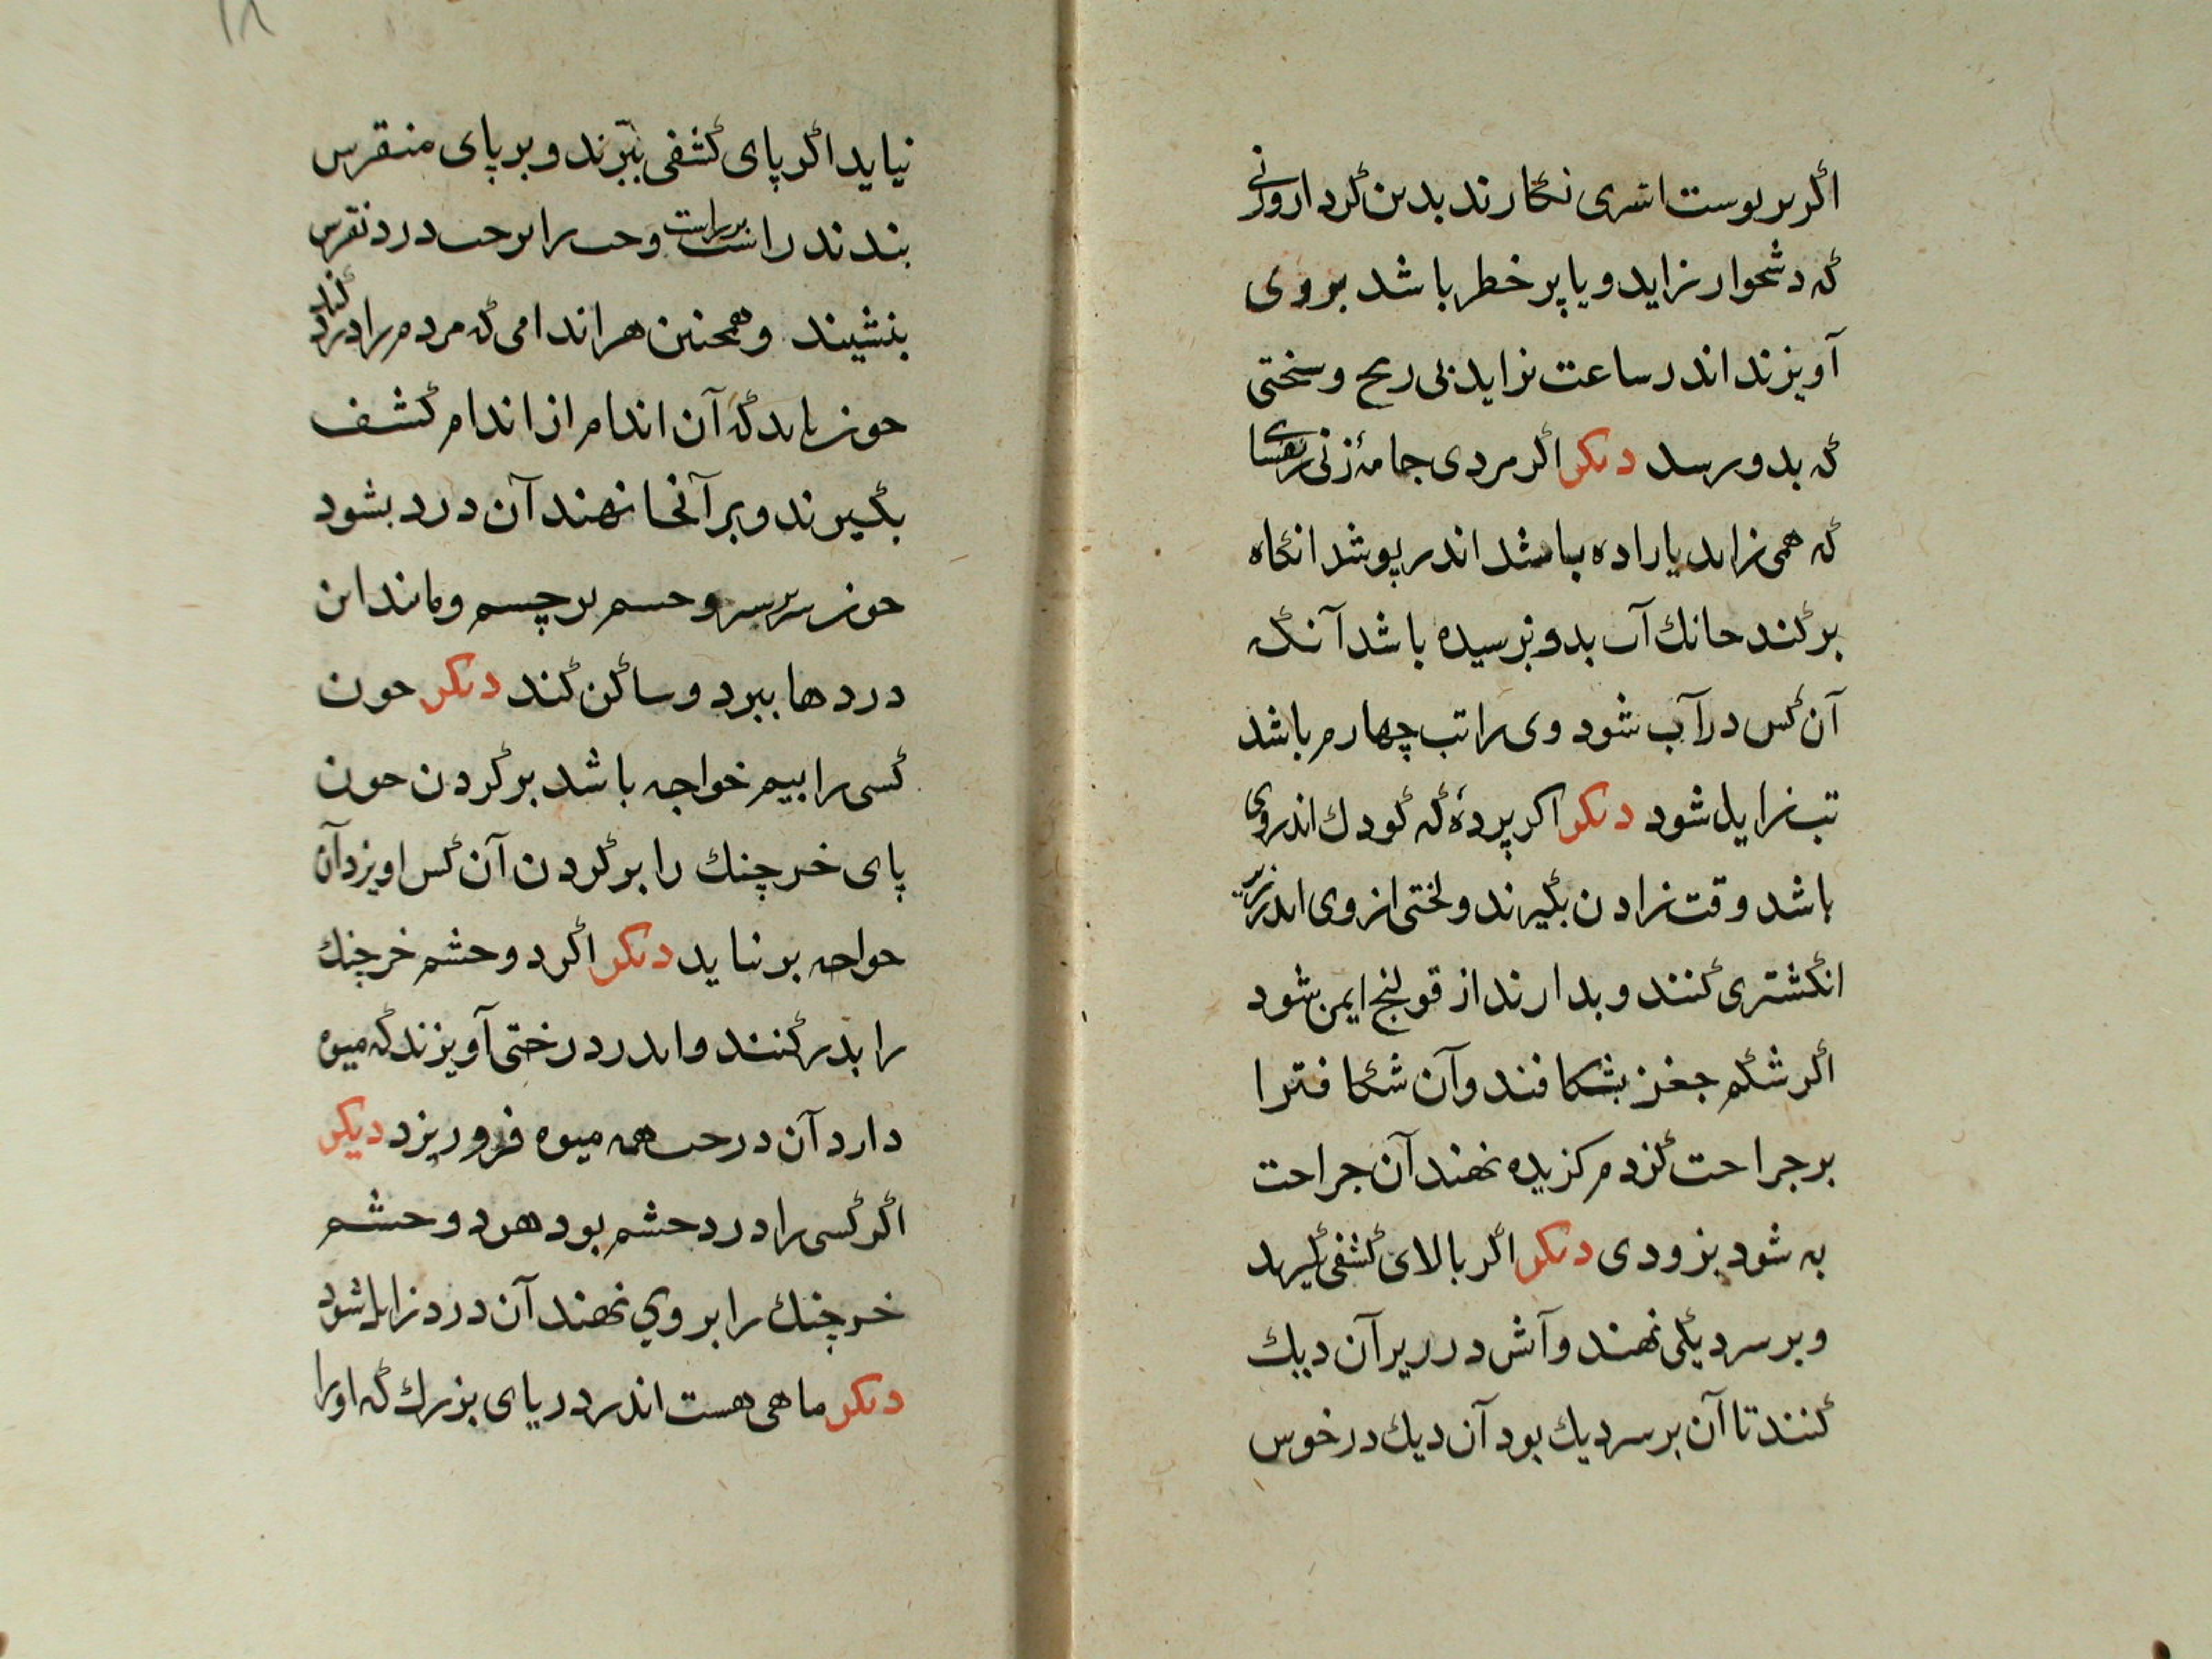 اگر بر پوست اشتری نگارند بدین کردار و زنی
که دشخوار زاید و یا پر خطر باشد بر وی
آویزند اندر ساعت بزاید بی رنج و سختی
که بدو رسد دیگر اگر مردی جامهٔ زنی ترسا
که همی زاید یا زاده باشد اندر پوشد انگاه
برکند چنانک آب بدو نرسیده باشد آنگه
آن کس در آب شود وی را تب چهارم باشد
تب زایل شود دیگر اگر پردهٔ که کودک اندر وی
باشد وقت زادن بگیرند و لختی از وی اندر زیر
انگشتری کنند و بدارند از قولنج ایمن شود
اگر شکم جغز بشکافند و آن شکافته را
بر جراحت کژدم گزیده نهند آن جراحت
به شود بزودی دیگر اگر بالای کشفی گیرند
و بر سر دیگی نهند و آتش در زیر آن دیک
کنند تا آن بر سر دیک بود آن دیک در خوس
نیاید اگر پای کشفی ببرند و بر پای منقرس
بندند راست بر راست و چپ را بر چپ درد نقرس
بنشیند و همچنین هر اندامی که مردم را درد کند
چون باید که آن اندام از اندام کشف
بگیرند و بر آنجا نهند آن درد بشود
چون سر بر سر و چشم بر چشم و مانند این
دردها ببرد و ساکن کند دیگر چون
کسی را بیم خواجه باشد بر گردن چون
پای خرچنک را بر گردن آن کس اویزد آن
خواجه بر نیاید دیگر اگر دو چشم خرچنک
را بدر کنند و اندر درختی آویزند که میوه
دارد آن درخت همه میوه فرو ریزد دیگر
اگر کسی را درد چشم بود هر دو چشم
خرچنک را بر وی نهند آن درد زایل شود
دیگر ماهی هست اندر دریای بزرک که او را